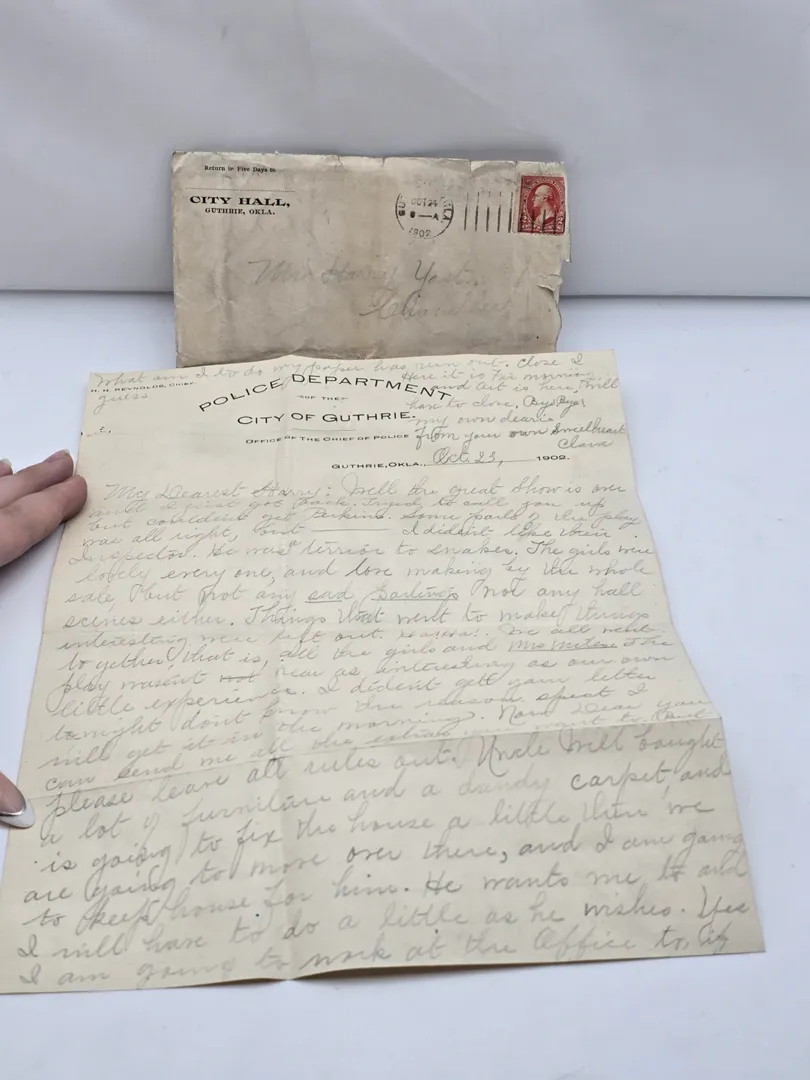 Return in Five Days to
CITY HALL,
GUTHRIE, OKLA.
OCT 24
8—A
1902
Mr Harry Yost
Chandler
What am I to do my paper has run out. Close I
guess
Here it is Fri morning
and Art is here, Will
have to close, Bye Bye
my own dearie
from your own Sweetheart
Clara
H. N. REYNOLDS, CHIEF.
POLICE DEPARTMENT
OF THE
CITY OF GUTHRIE.
OFFICE OF THE CHIEF OF POLICE
GUTHRIE, OKLA., Oct. 23, 1902.
My Dearest Harry: Well the great show is over
and I just got back. Tried to call you up
but couldent get Perkins. Some parts of the play
was all right, but I dident like their
Inspector. He was a terrior to snakes. The girls were
lovely every one, and love making by the whole
sale, but not any sad partings not any hall
scenes either. Things that went to make things
interesting were left out. We all went
to gether, that is, all the girls and The
play wasent near as interesting as our own
little experience. I dident get your letter
tonight dont know the reason, I
will get it in the morning. Now Dear you
can send me all the you want to But
please leave all rules out. Uncle Will bought
a lot of furniture and a dandy carpet, and
is going to fix the house a little then we
are going to move over there, and I am going
to keep house for him. He wants me to and
I will have to do a little as he wishes. Yes
I am going to work at the Office to, City